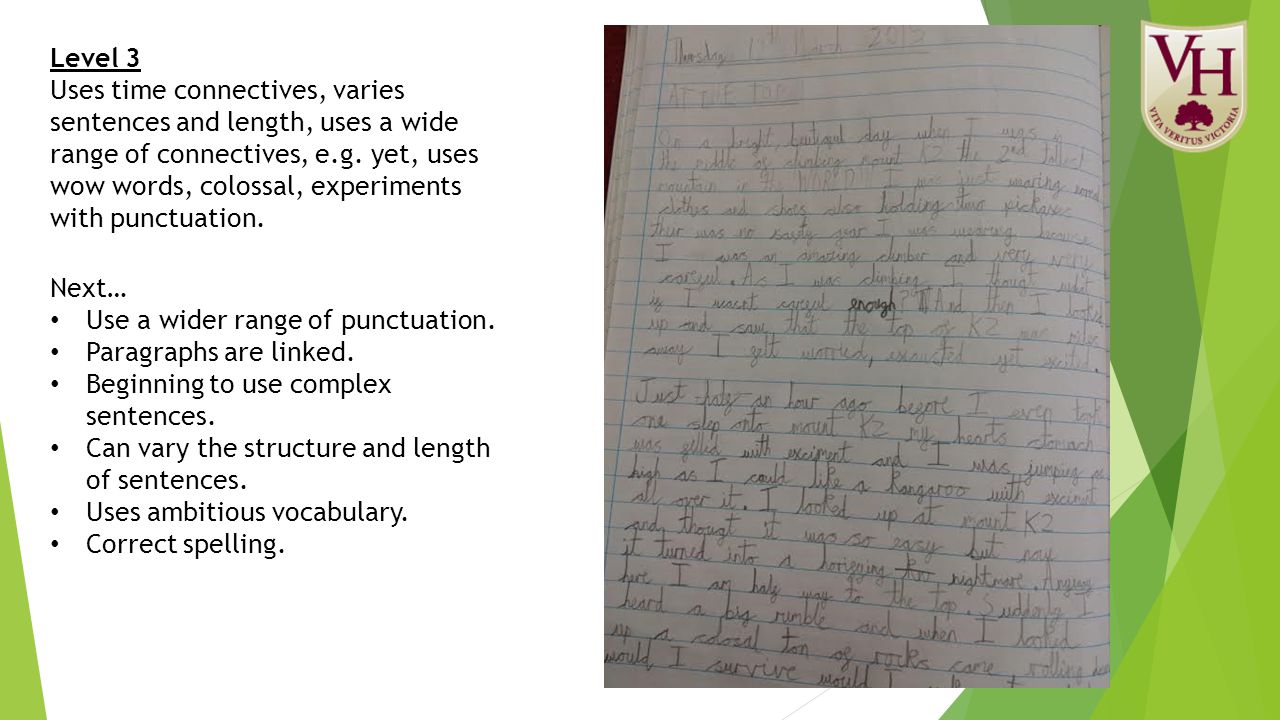 Level 3
Uses time connectives, varies
sentences and length, uses a wide
range of connectives, e.g. yet, uses
wow words, colossal, experiments
with punctuation.
Next…
• Use a wider range of punctuation.
• Paragraphs are linked.
• Beginning to use complex
sentences.
• Can vary the structure and length
of sentences.
• Uses ambitious vocabulary.
• Correct spelling.
Thursday March 2013
AT THE TOP
On a bright, day when I was in
the middle of climbing mount K2 the 2nd tallest
mountain in the WORLD!!! I was just wearing normal
clothes and shoes also holding two pickaxes
ther was no gear I was wearing because
I was an amazing climber and very very
careful. As I was climbing I thougt what
if I wasnt careful enough? And then I looked
up and saw that the top of K2 was miles
away I felt worried, exausted yet excited.
Just half an hour ago before I even took
one step onto mount K2 my hearts stomach
was filled with exciment and I was jumping as
high as I could like a kangaroo with exciment
all over it. I looked up at mount K2
and thougt it was so easy but now
it turned into a nightmare. Anyway
here I am half way to the top. Suddenly I
heard a big rumble and when I looked
up a colosal ton of rocks came rolling down
would I survive would I
VH
VITA VERITUS VICTORIA